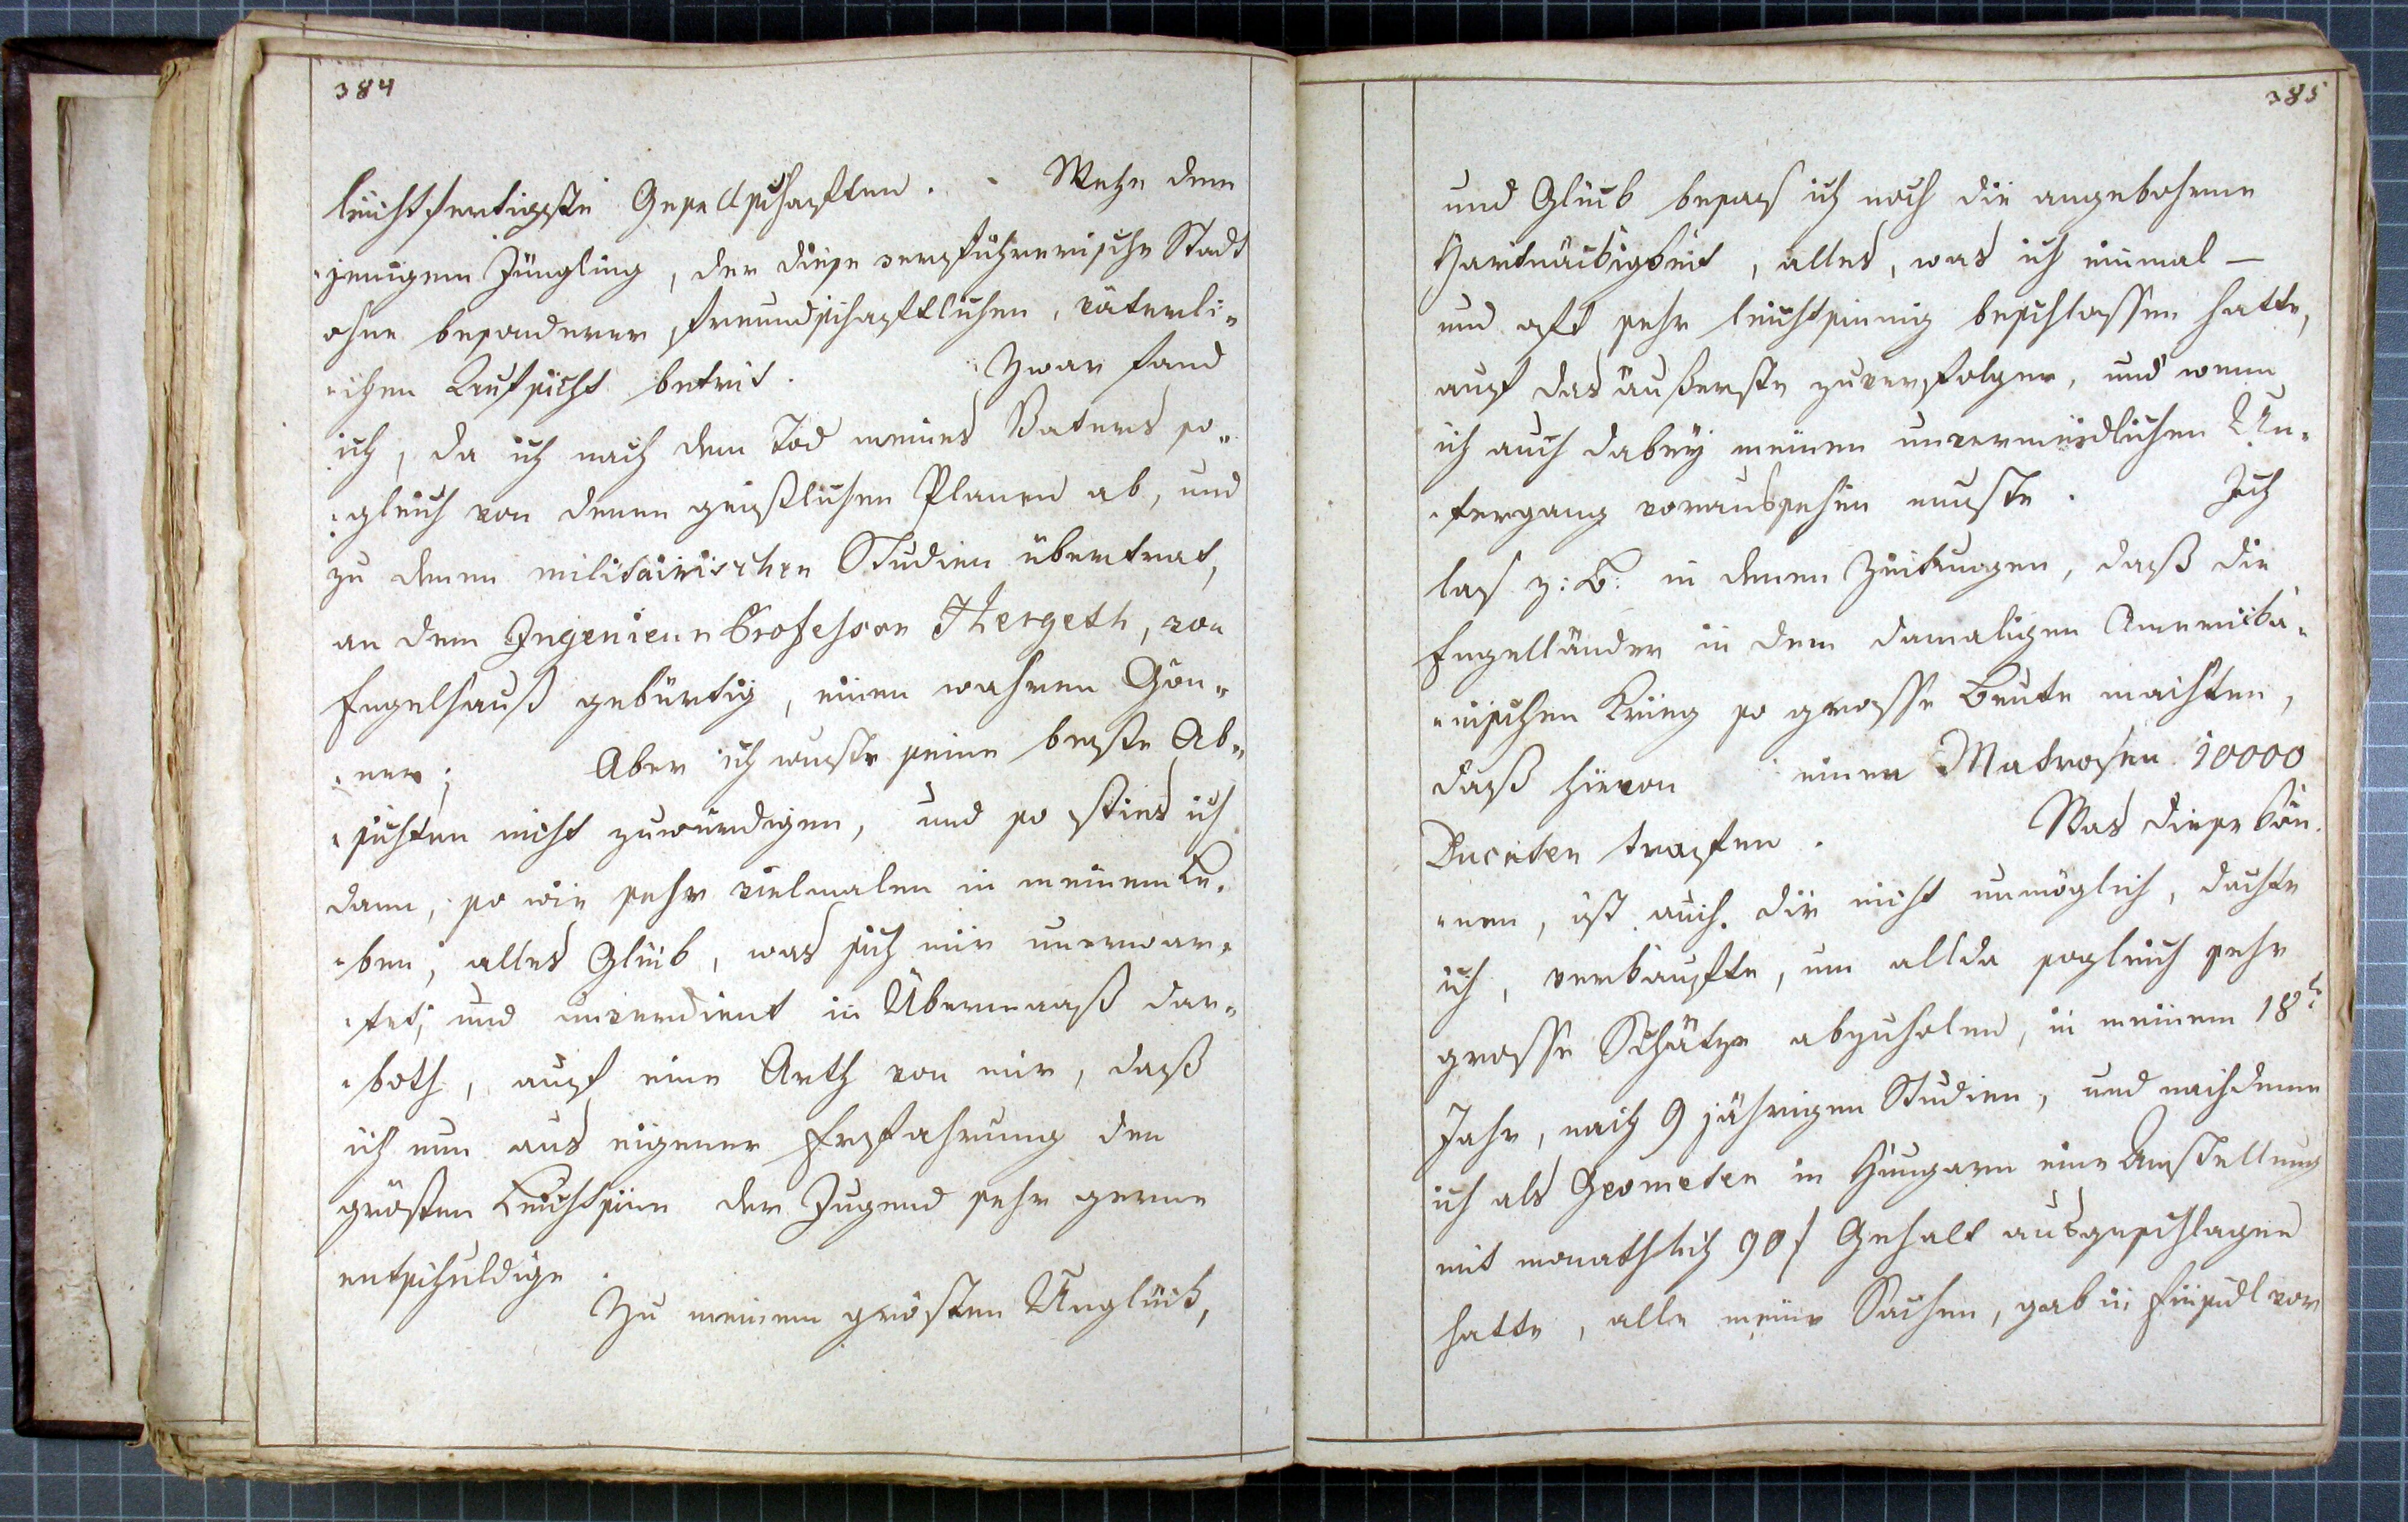 384
leichtfertigste Gesellschaften. - Wehe dem
"jenigem Jüngling, der diese verführerische Stadt
ohne besonderer freundschaftlichen, väterli"
"chen Aufsicht betrit. Zwar fand
ich, da ich nach dem Tod meines Vaters so"
"gleich von denen geistlichen Planen ab, und
zu denen militairischen Studien übertrat,
an dem Ingenieur Professor Hergeth, von
Engelhauß gebürtig, einen wahren Gön"
"ner; Aber ich wuste seine beste Ab"
"sichten nicht zuwürdigen, und so sties ich
dann, so wie sehr vielmalen in meinem Le"
"ben, alles Glük, was sich mir unerwar"
"tet, und unverdient in Übermaaß dar"
"both, auf eine Arth von mir, daß
ich nun aus eigener Erfahrung den
grösten Leichtsinn der Jugend sehr gerne
entschuldige.
Zu meinem grösten Unglück,
385
und Glück besas ich noch die angebohrne
Hartnäckigkeit, alles, was ich einmal —
und oft sehr leichtsinnig beschlossen hatte,
auf das äußerste zuverfolgen, und wenn
ich auch dabey meinen unvermeidlichen Un"
"tergang voraussehen muste. Ich
las z: B: in denen Zeitungen, daß die
Engelländer in dem damaligen Amerika"
"nischen Krieg so grosse Beute machten,
daß hievon einen Matrosen 10000
Ducaten trafen. Was diese kön"
"nen, ist auch dir nicht unmöglich, dachte
ich, verkaufte, um allda sogleich sehr
grosse Schätze abzuholen, in meinem 18t
Jahr, nach 9 jährigen Studien, und nachdeme
ich als Geometer in Hungarn eine Anstellung
mit monathlich 90 f Gehalt ausgeschlagen
hatte, alle meine Sachen, gab in Einsidl vor